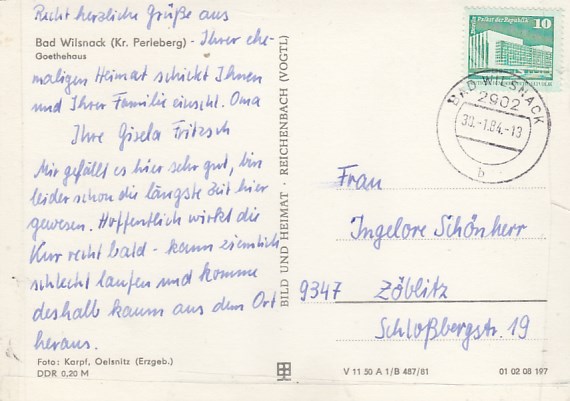 Recht herzliche Grüße aus
Bad Wilsnack (Kr. Perleberg) - Ihrer ehe-
Goethehaus
maligen Heimat schickt Ihnen
und Ihrer Familie einschl. Oma
Ihre Gisela Fritzsch
Mir gefällt es hier sehr gut, bin
leider schon die längste Zeit hier
gewesen. Hoffentlich wirkt die
Kur recht bald - kann ziemlich
schlecht laufen und komme
deshalb kaum aus dem Ort
heraus.
Foto: Karpf, Oelsnitz (Erzgeb.)
DDR 0,20 M
BILD UND HEIMAT · REICHENBACH (VOGTL)
Palast der Republik 10
BAD WILSNACK
2902
30.-1.84.-13
b
Frau
Ingelore Schönherr
9347 Zöblitz
Schloßbergstr. 19
V 11 50 A 1/B 487/81
01 02 08 197